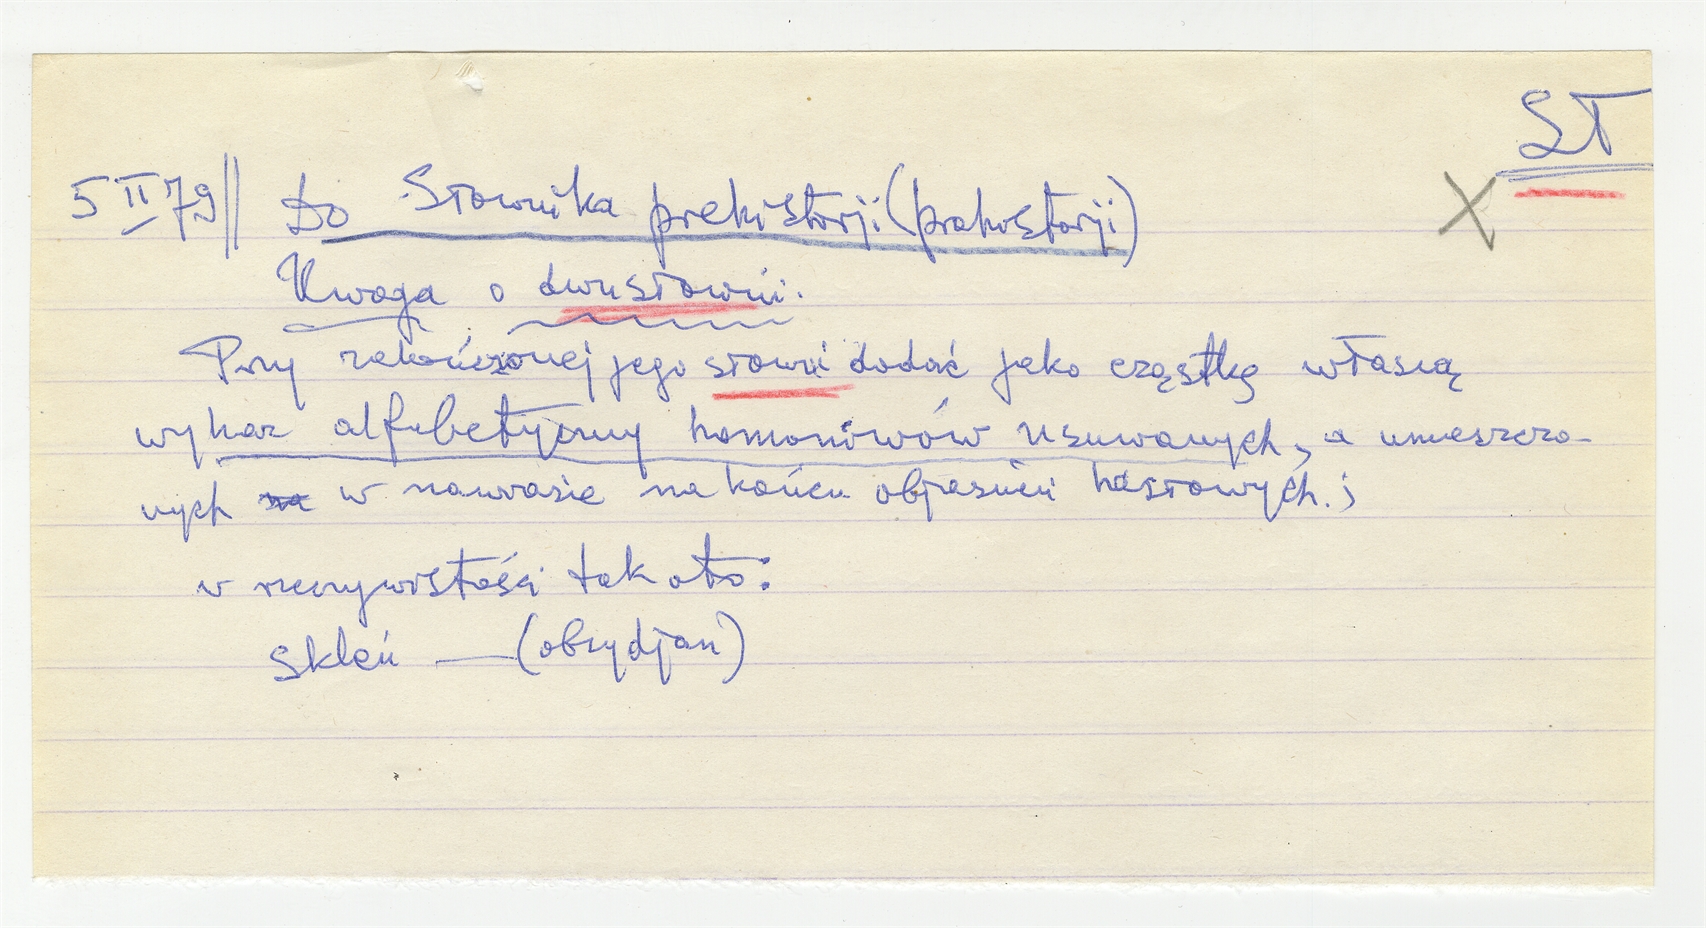 SŁ
5 II 79 || Do Słownika prehistorji (prahistorji)
Uwaga o dwusłowni.
Przy zakończonej jego słowni dodać jako cząstkę własną
wykaz alfabetyczny homoniwów usuwanych, a umieszczo-
nych w nawiasie na końcu objaśnień hasłowych.;
w rzeczywistości tak oto:
Skleń — (obsydjan)